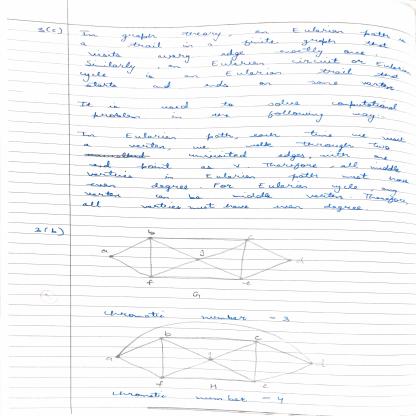 3(c) In graph theory, an Eulerian path is
a trail in a finite graph that
visits every edge exactly once.
Similarly, an Eulerian circuit or Eulerian
cycle is an Eulerian trail that
starts and ends on same vertex
It is used to solve computational
problem in the following way:-
In Eulerian path, each time we visit
a vertex, we walk through two
unvisited edges, with one
end point as v. Therefore, all middle
vertices in Eulerian path must have
even degree. For Eulerian cycle, any
vertex can be middle vertex. Therefore,
all vertices must have even degree.
3(b)
b c
a g d
f e
G
chromatic number = 3
b c
a d
f H e
chromatic number = 4